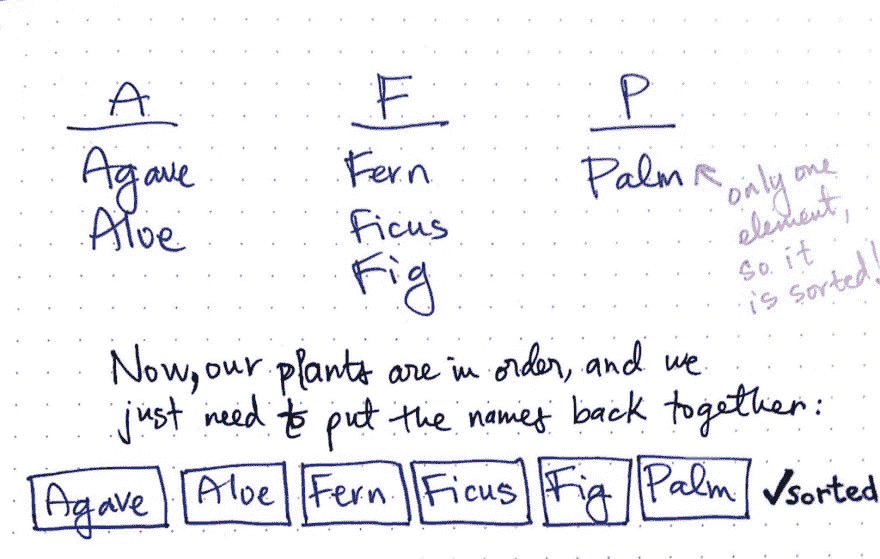 A F P
Agave Fern Palm
Aloe Ficus
Fig
only one
element,
so it
is sorted!
Now, our plants are in order, and we
just need to put the names back together:
Agave Aloe Fern Ficus Fig Palm ✓sorted